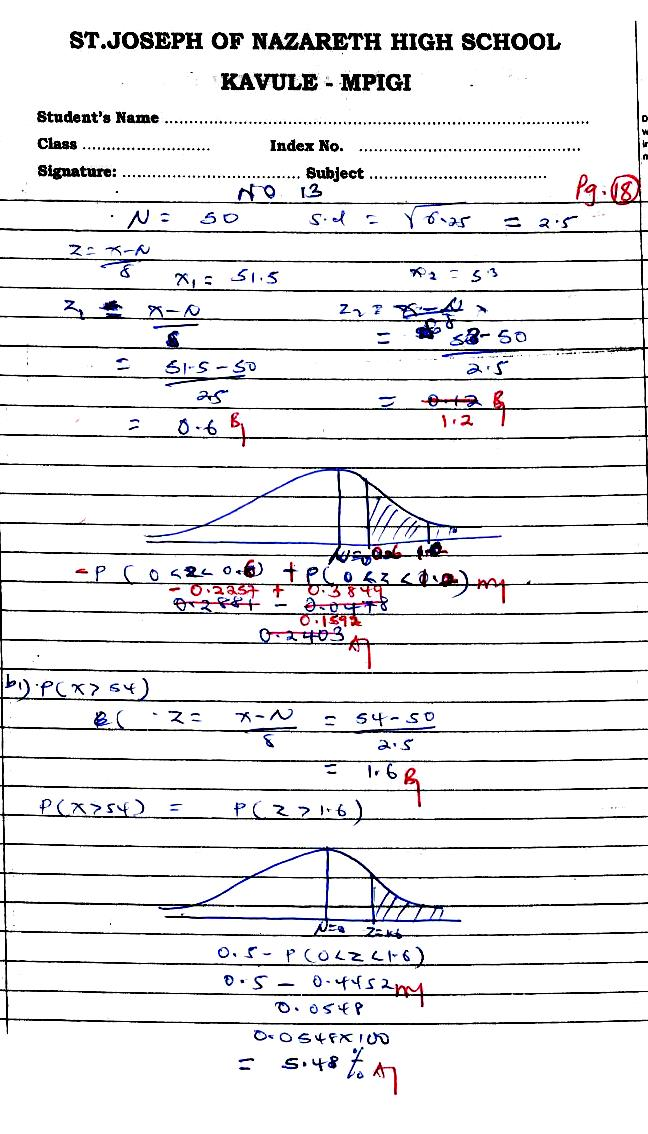 ST.JOSEPH OF NAZARETH HIGH SCHOOL
KAVULE - MPIGI
Student's Name ..........................................................................................
Class ........................... Index No. ...............................................
Signature: ............................... Subject ........................................
NO 13 Pg. 18
N = 50 S.d = √6.25 = 2.5
Z = x-N/8
x1 = 51.5 x2 = 53
Z1 = x-N/8 Z2 = x-N/8
= 51.5-50/2.5 = 53-50/2.5
= 0.6 B1 = 0.12 1.2 B1
N=0 0.6 1.2
-P(0<z<0.6) + P(0<z<1.2) m1
- 0.2257 + 0.3849
0.2881 - 0.0478
0.1592
0.2403 A1
b1) P(x>54)
Z = x-N/8 = 54-50/2.5
= 1.6 B1
P(x>54) = P(Z>1.6)
N=0 Z=1.6
0.5 - P(0<Z<1.6)
0.5 - 0.4452 m1
0.0548
0.0548x100
= 5.48% A1